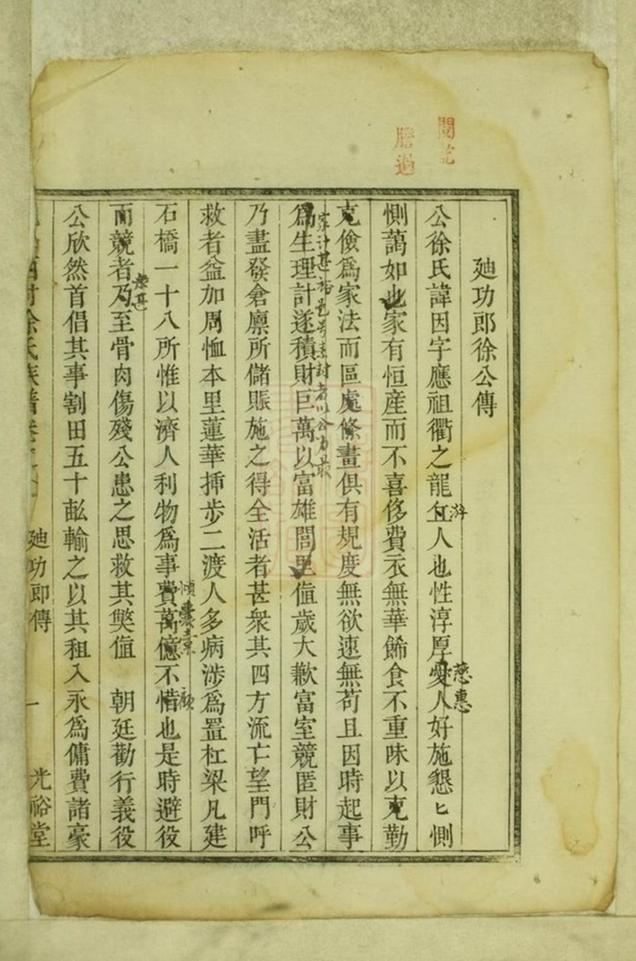 廸功郎徐公傳
公徐氏諱因字應祖衢之龍㳺人也性淳厚愛人好施懇匕惻
慈惠
惻藹如也家有恒産而不喜侈費衣無華餙食不重味以克勤
克儉爲家法而區處條畫俱有規度無欲速無苟且因時起事
爲生理計遂積財巨萬以富雄閭里值歲大歉富室競匿財公
乃盡發倉廪所儲賑施之得全活者甚衆其四方流亡望門呼
救者益加周恤本里蓮華挿步二渡人多病涉爲置杠梁凡建
石橋一十八所惟以濟人利物爲事費萬億不惜也是時避役
傾囊槖
而競者乃至骨肉傷殘公患之思救其獘值 朝廷勸行義役
公欣然首倡其事割田五十畝輸之以其租入永爲傭費諸豪
村徐氏族譜卷
廸功郎傳
一
光裕堂